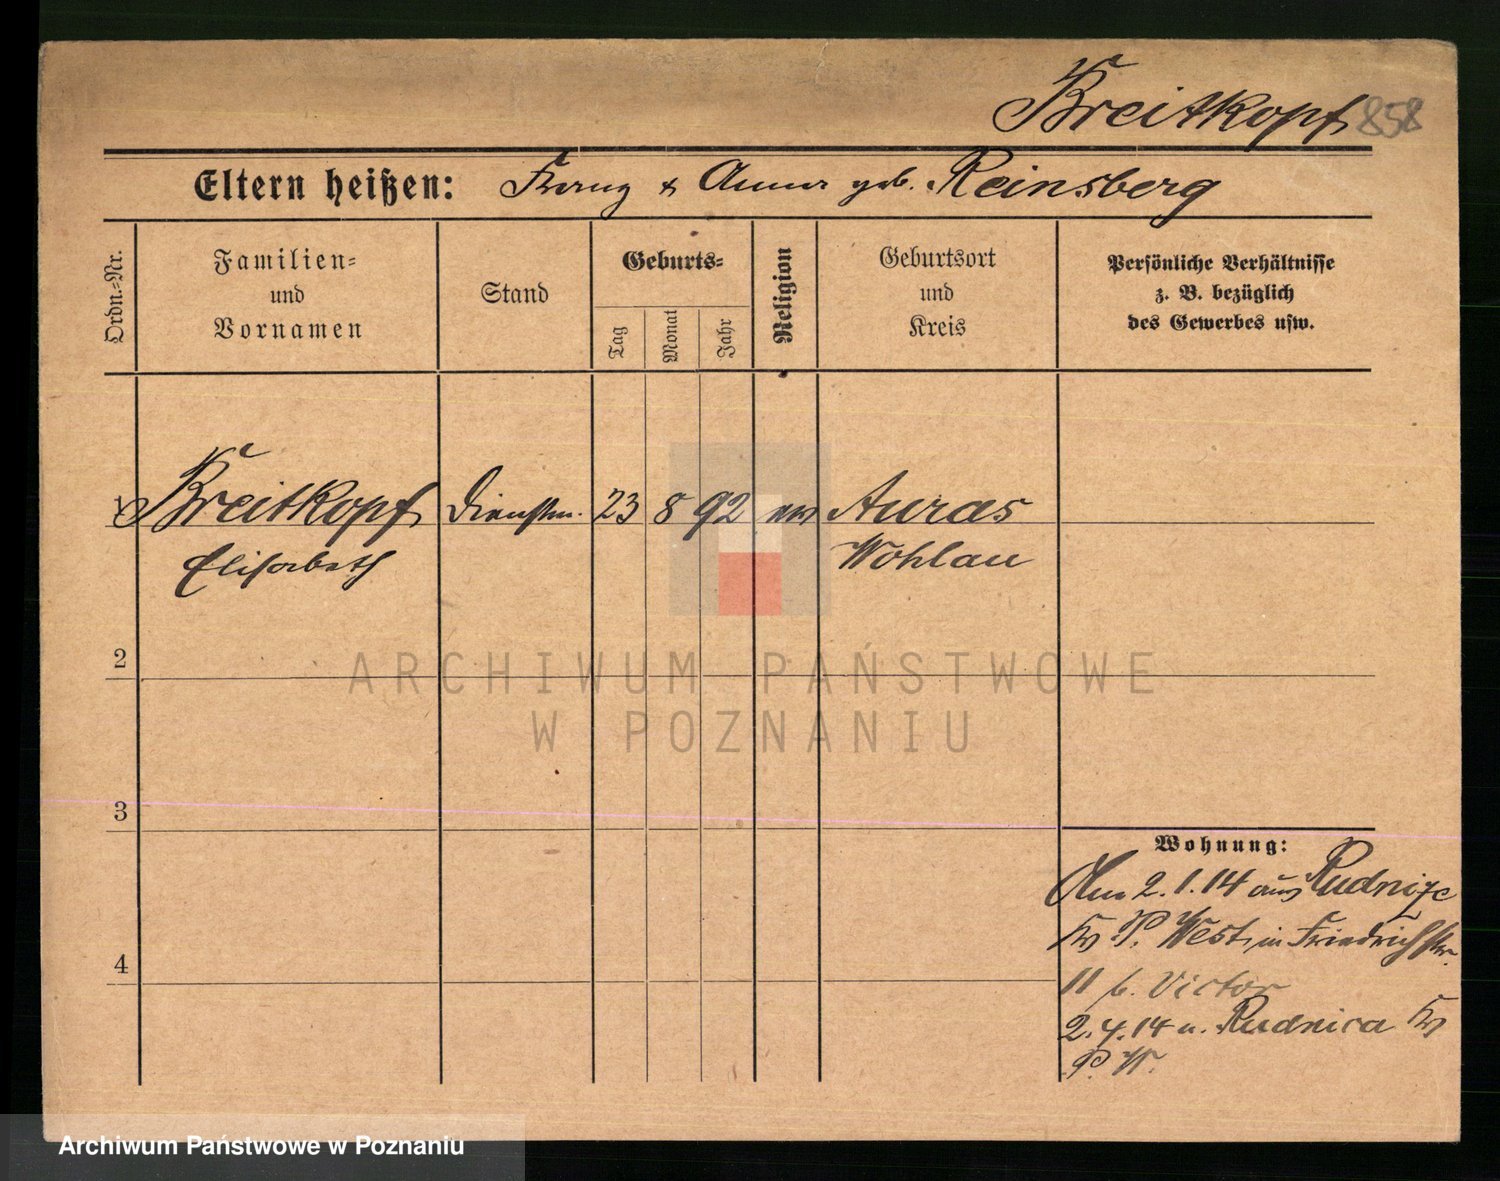 Breitkopf 858
Eltern heißen: Franz & Anna geb. Reinsberg
Ordn.-Nr.
Familien-
und
Vornamen
Stand
Geburts-
Tag
Monat
Jahr
Religion
Geburtsort
und
Kreis
Persönliche Verhältnisse
z. B. bezüglich
des Gewerbes usw.
1 Breitkopf Dienstm. 23 8 92 ev Auras
Elisabeth Wohlau
2
3
4
Wohnung:
Am 2.1.14 aus Rudnize
Kr P. West in Friedrichstr.
11 b. Victor
2.4.14 n. Rudnica Kr
P. W.
ARCHIWUM PAŃSTWOWE
W POZNANIU
Archiwum Państwowe w Poznaniu